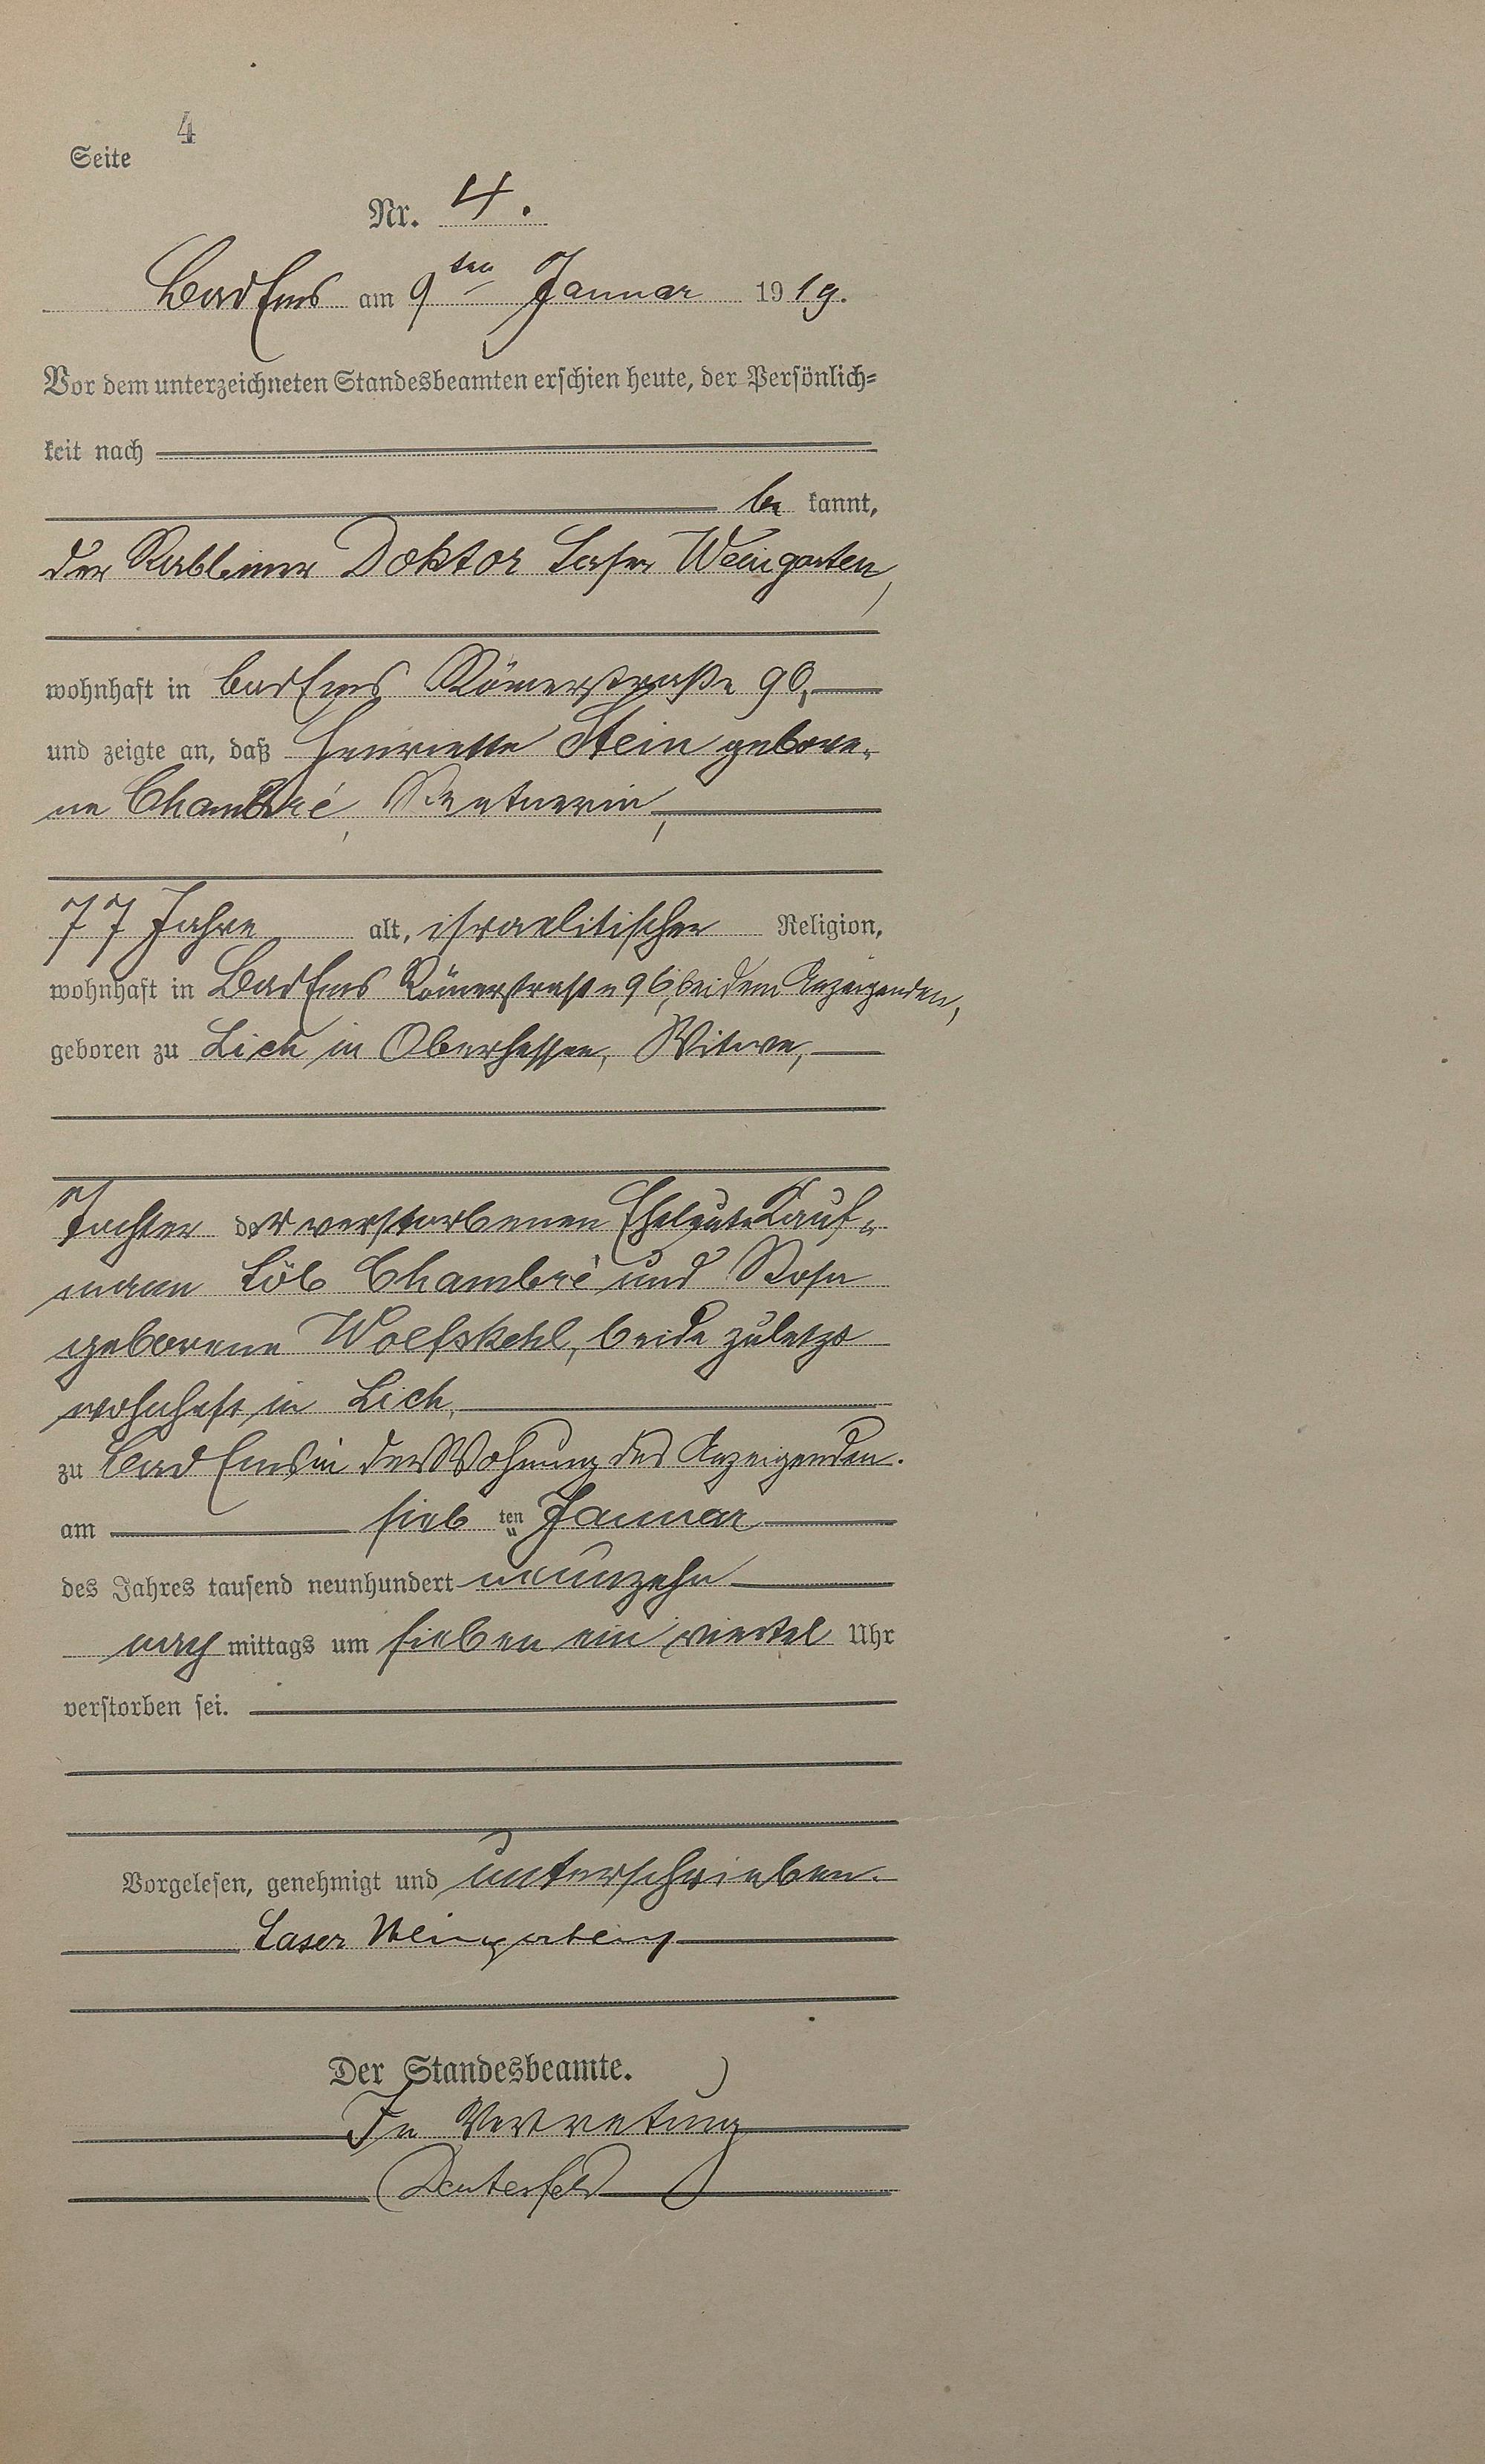 4
Seite
Nr. 4.
Bad Ems am 9ten Januar 1919.
Vor dem unterzeichneten Standesbeamten erschien heute, der Persönlich=
keit nach
be kannt,
der Rabbiner Doktor Laser Weingarten,
wohnhaft in Bad Ems Römerstraße 96,
und zeigte an, daß Henriette Stein gebore-
ne Chambré, Rentnerin,
77 Jahre alt, israelitischer Religion,
wohnhaft in Bad Ems Römerstraße 96, bei dem Anzeigenden,
geboren zu Lich in Oberhessen, Witwe,
Tochter der verstorbenen Eheleute Kauf-
mann Löb Chambré und Rosa
geborene Wolfskehl, beide zuletzt
wohnhaft in Lich,
zu Bad Ems in der Wohnung des Anzeigenden.
am sieb ten Januar
des Jahres tausend neunhundert neunzehn
nach mittags um sieben ein viertel Uhr
verstorben sei.
Vorgelesen, genehmigt und unterschrieben.
Laser Weingarten
Der Standesbeamte.
In Vertretung